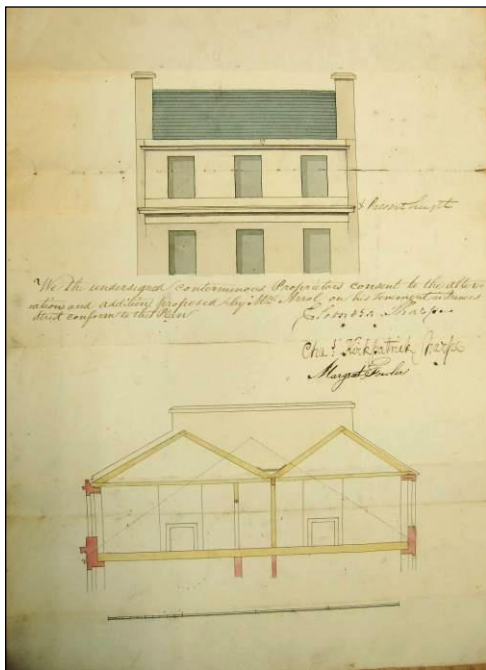 Present height
We the undersigned conterminous Proprietors consent to the alter
ations and addition proposed by Mr. Arrol on his tenement in Princes
Street conform to this Plan
Sharpe
Chas. Kirkpatrick Sharpe
Margret